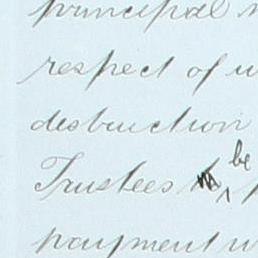 principal
respect of
destruction
Trustees be
payment